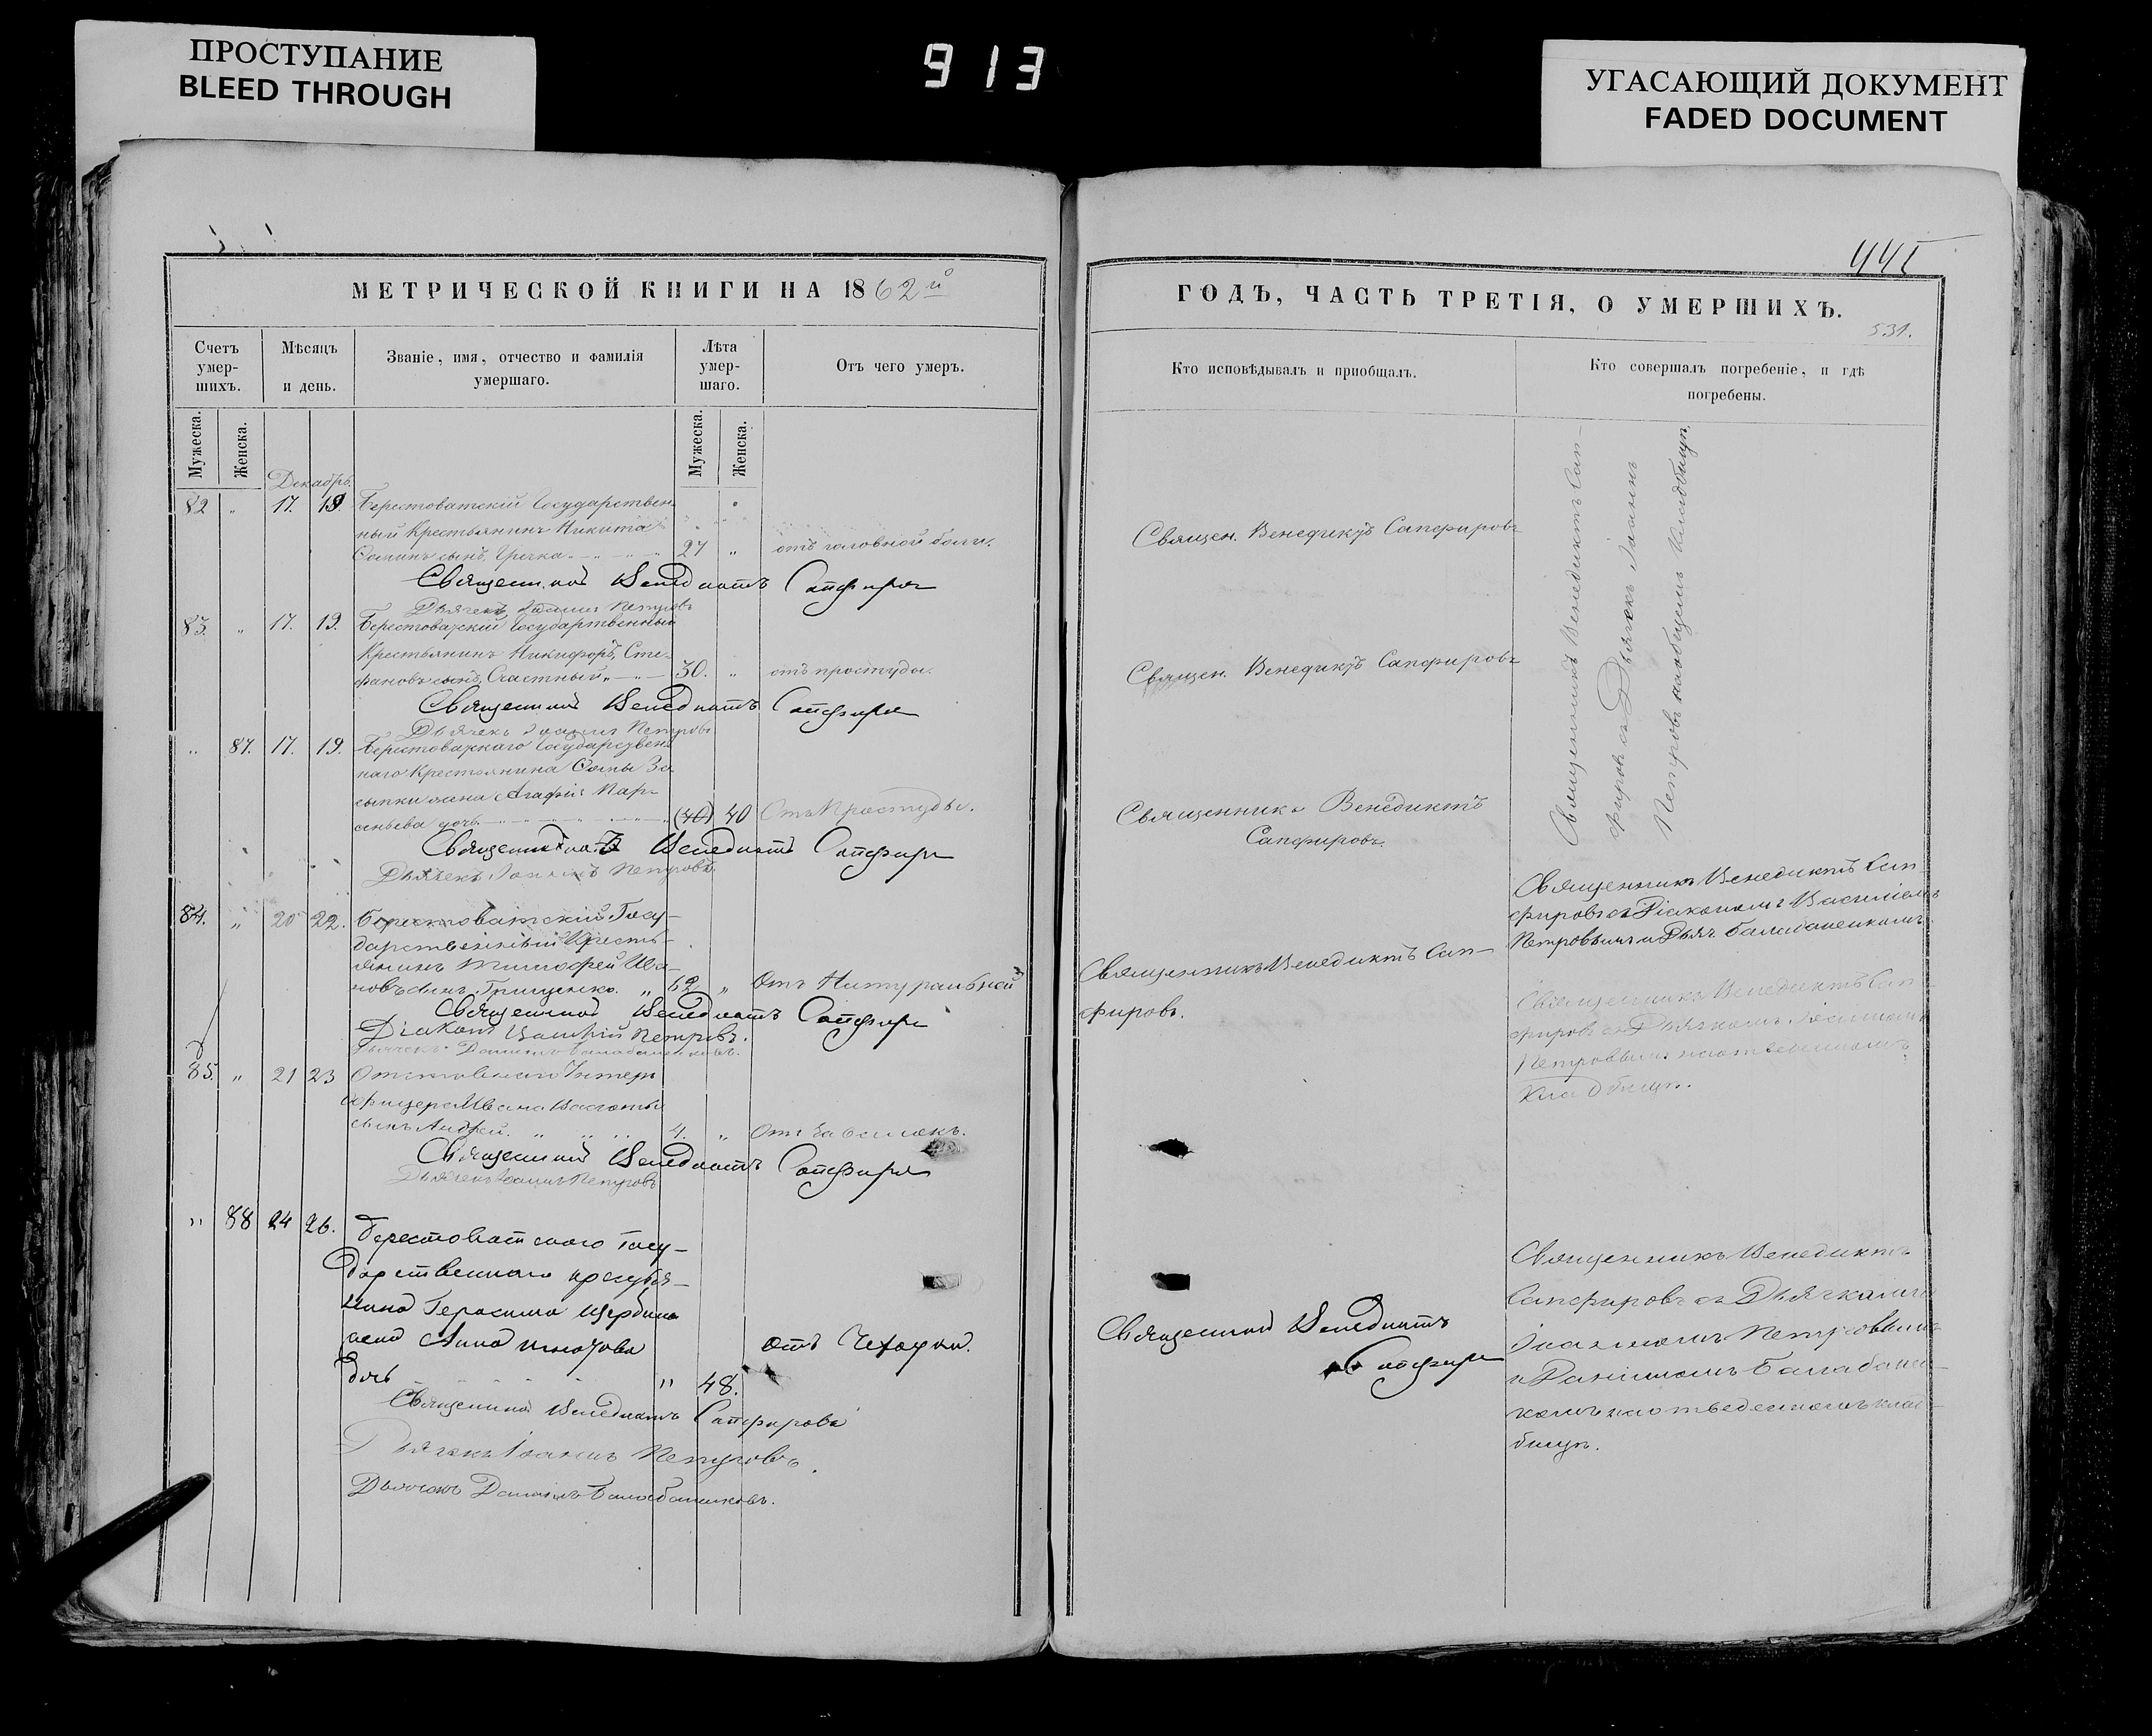 ПРОСТУПАНИЕ
BLEED THROUGH
913
УГАСАЮЩИЙ ДОКУМЕНТ
FADED DOCUMENT
МЕТРИЧЕСКОЙ КНИГИ НА 1862й
Счетъ умер-шихъ.
Мѣсяцъ и день.
Званіе, имя, отчество и фамилія умершаго.
Лѣта умер-шаго.
Отъ чего умеръ.
Мужеска.
Женска.
Мужеска.
Женска.
Декабрь.
82 " 17. 19. Берестоватскій Государствен-
ный Крестьянинъ Никита
сынъ Гречка 27 " отъ головной боли.
Священникъ Венедиктъ Сапфировъ
Дьячекъ Іоаннъ Петровъ
83. " 17. 19. Берестоватскій Государственный
Крестьянинъ Никифоръ Сте-
фановъ сынъ Счастный 30. " отъ простуды.
Священникъ Венедиктъ Сапфировъ
Дьячекъ Іоаннъ Петровъ
" 87. 17. 19. Берестоватскаго Государствен-
наго Крестьянина
жена Агафія Пар-
(40) 40 Отъ Простуды.
Священникъ Венедиктъ Сапфировъ
Дьячекъ Іоаннъ Петровъ.
84. " 20 22. Берестоватскій Госу-
дарственный Кресть-
янинъ Тимофей Ива-
новъ сынъ Грищенко. " 62 " Отъ Натуральной
Священникъ Венедиктъ Сапфировъ
Діаконъ Василій Петровъ.
Дьячекъ Даніилъ
85. " 21 23 Отставнаго Унтеръ
Офицера Ивана
сынъ Андрей. 4. "
Священникъ Венедиктъ Сапфировъ
Дьячекъ Іоаннъ Петровъ
" 88 24 26. Берестоватскаго Госу-
дарственнаго крестья-
нина Герасима Щербины
жена Анна отъ Чахотки.
дочь " 48.
Священникъ Венедиктъ Сапфировъ
Дьячекъ Іоаннъ Петровъ.
Дьячокъ Даніилъ
445
ГОДЪ, ЧАСТЬ ТРЕТІЯ, О УМЕРШИХЪ.
531.
Кто исповѣдывалъ и приобщалъ.
Кто совершалъ погребеніе, и гдѣ погребены.
Священ. Венедиктъ Сапфировъ
Священ. Венедиктъ Сапфировъ
Священникъ Венедиктъ
Сапфировъ.
Священникъ Венедиктъ Сап-
фировъ съ Дьячекъ Іоаннъ
Петровъ на общемъ кладбищѣ.
Священникъ Венедиктъ Сап-
фировъ.
Священникъ Венедиктъ Сап-
фировъ съ Діакономъ Василіемъ
Петровымъ и Дьяч.
Священникъ Венедиктъ Сап-
фировъ съ Дьячкомъ Іоанномъ
Петровымъ на отведенномъ
кладбищѣ.
Священникъ Венедиктъ
Сапфировъ
Священникъ Венедиктъ
Сапфировъ съ Дьячками
Іоанномъ Петровымъ
и Даніиломъ Балабанен-
комъ на отведенномъ клад-
бищѣ.